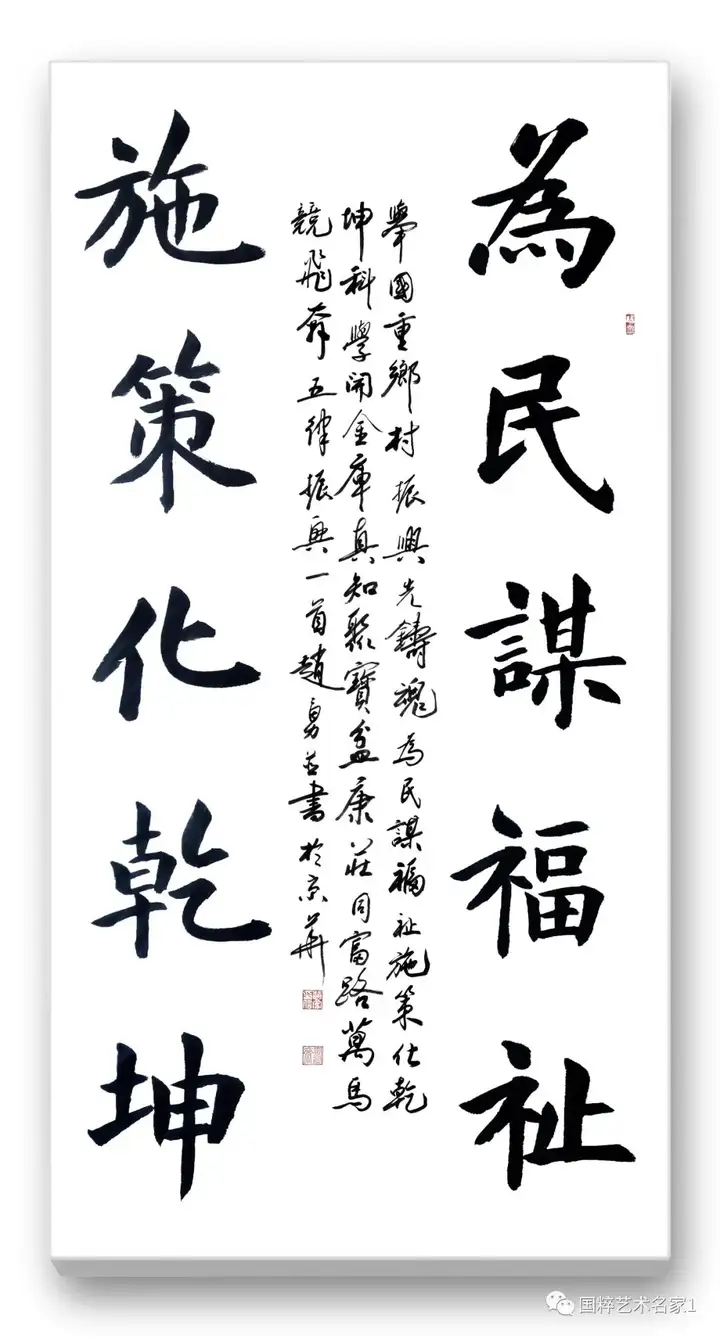 為民謀福祉
舉國重鄉村振興先鑄魂為民謀福祉施策化乾
坤科學開金庫真知聚寶盆康莊同富路萬馬
競飛奔五律振興一首趙勇並書於京華
施策化乾坤
国粹艺术名家1